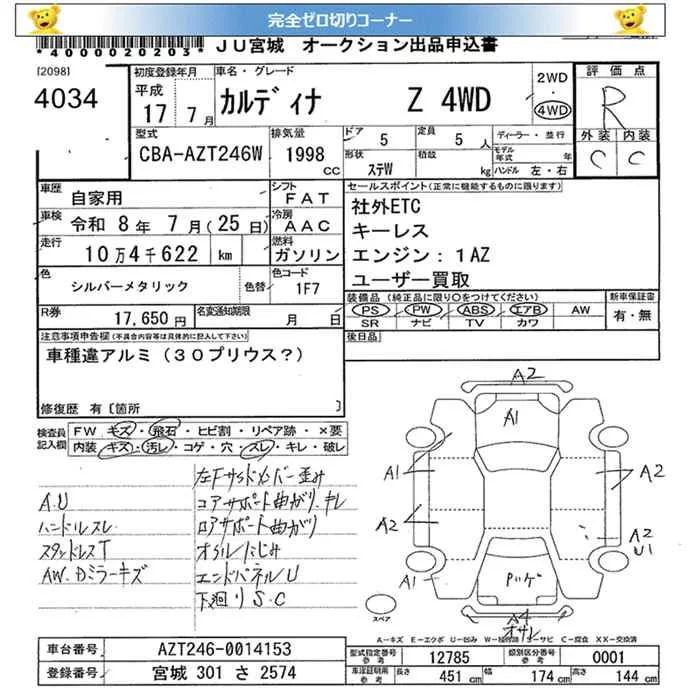 完全ゼロ切りコーナー
*4000020203* JU宮城 オークション出品申込書
[2098]
4034
初度登録年月
平成
17年 7月
車名・グレード
カルディナ Z 4WD
2WD
・
4WD
評価点
R
外装 内装
C C
型式
CBA-AZT246W
排気量
1998 CC
ドア 5
定員 5 人
形状 ステW
積載 kg
ディーラー・並行
モデル年式 年
ハンドル 左・右
車歴 自家用
シフト FAT
車検 令和 8年 7月(25日)
冷房 AAC
走行 10万4千622 km
燃料 ガソリン
色 シルバーメタリック 色替
色コード 1F7
R券 17,650円
名変通知期限 月 日
セールスポイント(正常に機能するものに限ります)
社外ETC
キーレス
エンジン:1AZ
ユーザー買取
装備品(純正品に限り○をつけてください)
PS PW ABS エアB AW
SR ナビ TV カワ
新車保証書
有・無
後日品
注意事項申告欄(不具合内容等は具体的に記入して下さい)
車種違アルミ(30プリウス?)
修復歴 有〔箇所 〕
検査員記入欄
FW キズ・飛石・ヒビ割・リペア跡・×要
内装 キズ・汚レ・コゲ・穴・スレ・キレ・破レ
A.U
ハンドルスレ
スタッドレスT
AW.Dミラーキズ
左Fサイドカバー歪み
コアサポート曲がり.キレ
ロアサポート曲がり
オイルにじみ
エンドパネルU
下廻りS.C
A2
A1
A1
A2
A2
A2
U1
A1
A4
スペア
A-キズ E-エクボ U-凹み W-修理跡 S-サビ C-腐食 XX-交換済
車台番号 AZT246-0014153
登録番号 宮城 301 さ 2574
型式指定番号 参考 12785
類別区分番号 参考 0001
車庫証明用 参考 長さ 451cm 幅 174cm 高さ 144cm